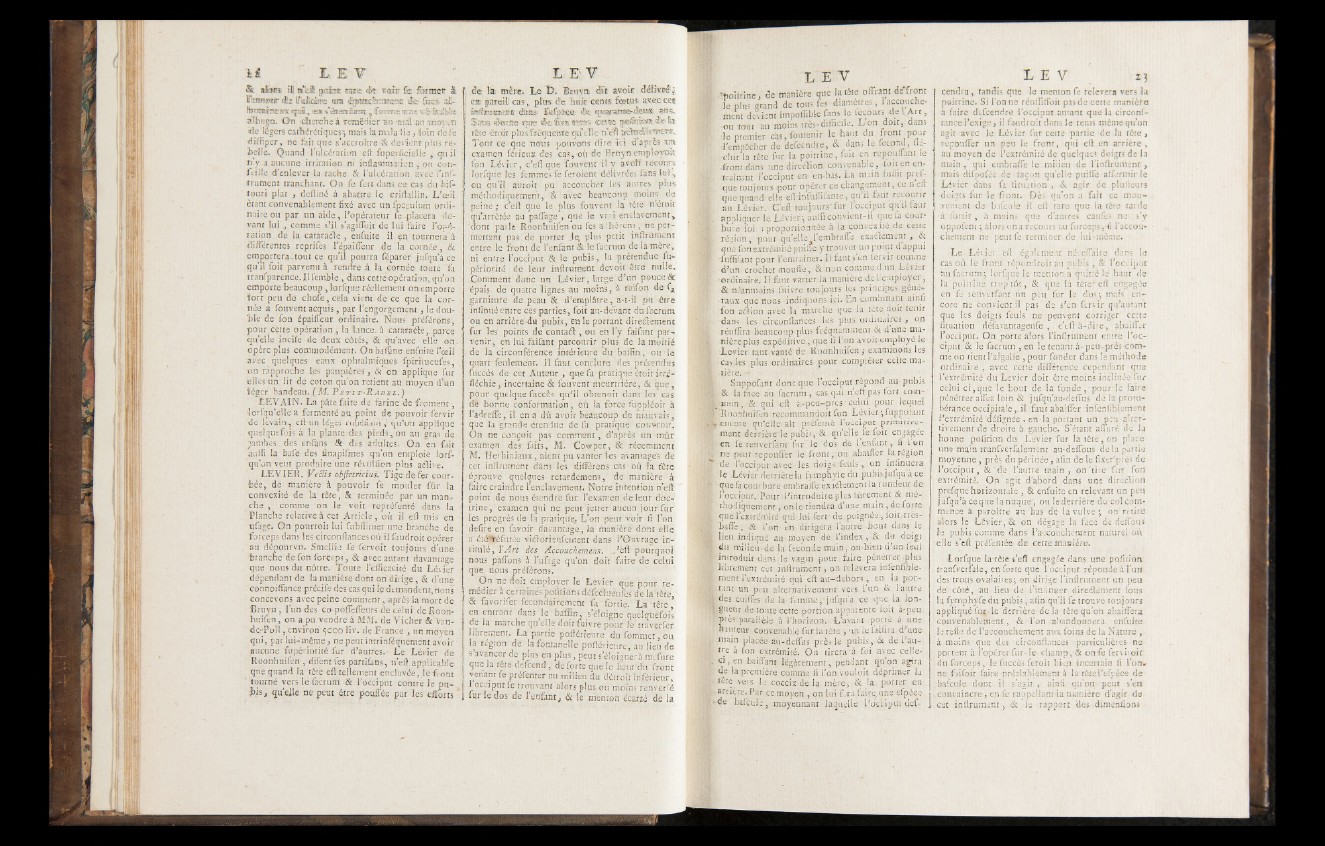 22 L E V
& alors il n'est point rare de voir se former à
l'humeur de l'ulcère un épanchement de sucs al-
albugo. On cherche à remédier au mal au moyen
de légers cathérétiques; mais la maladie, loin de se
dissiper, ne fait que s'accroître & devient plus re-
belle. Quand l'ulcération est superficielle, qu'il
n'y a aucune irritation ni inflammation, on con-
seille d'enlever la tache & l'ulcération avec l'ins-
trument tranchant. On se sert dans ce cas du bis-
touri plat, destiné à abattre le cristallin. L'œil
étant convenablement fixé avec un speculum ordi-
naire ou par un aide, l'opérateur se placera de-
vant lui, comme s'il s'agissoit de lui faire l'opé-
ration de la cataracte, ensuite il en tournera à
différentes reprises l'épaisseur de la cornée, &
emportera tout ce qu'il pourra séparer jusqu'à ce
qu'il soit parvenu à rendre à la cornée toute sa
transparence. Il semble, dans cette opération, qu'on
emporte beaucoup, lorsque réellement on emporte
fort peu de chose, cela vient de ce que la cor-
née a souvent acquis, par l'engorgement, le dou-
ble de son épaisseur ordinaire. Nous préférons,
pour cette opération, la lance à cataracte, parce
qu'elle incise de deux côtés, & qu'avec elle on
opère plus commodément. On bassine ensuite l'œil
avec quelques eaux ophtalmiques spiritueuses,
on rapproche les paupières, & on applique sur
elles un lit de coton qu'on retient au moyen d'un
léger bandeau. (M. PETIT-RADEL.)
LEVAIN. La pâte faite de farine de froment,
lorsqu'elle a fermenté au point de pouvoir servir
de levain, est un léger rubéfiant, qu'on applique
quelquefois à la plante des pieds, ou au gras de
jambes des enfans & des adultes. On en fait
aussi la base des sinapismes qu'on emploie lors-
qu'on veut produire une révulsion plus active.
LEVIER. Vectis obstetricius. Tige de fer cour-
bée, de manière à pouvoir se mouler sur la
convexité de la tête, & terminée par un man-
che, comme on le voit représenté dans la
Planche relative à cet Article, où il est mis en
usage. On pourroit lui substituer une branche de
forceps dans les circonstances où il faudroit opérer
au dépourvu. Smellie se servoit toujours d'une
branche de son forceps, & avec autant davantage
que nous du nôtre. Toute l'efficacité du Lévier
dépendant de la manière dont on dirige, & d'une
connoissance précise des cas qui le demandent, nous
concevons avec peine comment, après la mort de
Bruyn, l'un des co-possesseurs de celui de Roon-
huisen, on a pu vendre à MM. de Vicher & Van-
de-Poll, environ 5000 liv. de France, un moyen
qui, par lui-même, ne peut intrinséquement avoir
aucune supériorité sur d'autres. Le Lévier de
Roonhuisen, disent ses partisans, n'est applicable
que quand la tête est tellement enclavée, le front
tourné vers le sacrum & l'occiput contre le pu-
bis, qu'elle ne peut être poussée par les efforts
L E V
de la mère. Le D. Bruyn dit avoir délivré,
en pareil cas, plus de huit cents fœtus avec cet
instrument dans l'espace de quarante-deux ans.
tête étoit plus fréquente qu'elle n'est
Tout ce que nous pouvons dire ici d'après un
examen sérieux des cas, où de Bruyn employoit
son Lévier, c'est que souvent il y avoit recours
lorsque les femmes se seroient délivrées sans lui,
ou qu'il auroit pu accoucher les autres plus
méthodiquement, & avec beaucoup moins de
peine; c'est que le plus souvent la tête n'étoit
qu'arrêtée au passage, que le vrai enclavement,
dont parle Roonhuisen ou ses adhérens, ne per-
mettant pas de porter le plus petit instrument
entre le front de l'enfant & le sacrum de la mère,
ni entre l'occiput & le pubis, la prétendue su-
périorité de leur instrument devoit être nulle.
Comment donc un Lévier, large d'un pouce &
épais de quatre lignes au moins, à raison de sa
garniture de peau & d'emplâtre, a-t-il pu être
insinué entre ces parties, soit au-devant du sacrum
ou en arrière du pubis, en le portant directement
sur les points de contact, ou en l'y faisant par-
venir, en lui faisant parcourir plus de la moitié
de la circonférence intérieure du bassin, ou le
quart seulement. Il faut conclure des prétendus
succès de cet Auteur, que sa pratique étoit irré-
fléchie, incertaine & souvent meurtrière, & que,
pour quelque succès qu'il obtenoit dans les cas
de bonne conformation, où la force suppléoit à
l'adresse, il en a dû avoir beaucoup de mauvais,
que la grande étendue de sa pratique couvroit.
On ne conçoit pas comment, d'après un mûr
examen des faits, M. Cowper, & récemment
M. Herbiniaux, aient pu vanter les avantages de
cet instrument dans les différens cas où la tête
éprouve quelques retardemens, de manière à
faire craindre l'enclavement. Notre intention n'est
point de nous étendre sur l'examen de leur doc-
trine, examen qui ne peut jetter aucun jour sur
les progrès de la pratique. L'on peut voir si l'on
desire en savoir davantage, la manière dont elle
a été réfutée victorieusement dans l'Ouvrage in-
titulé, l'Art des Accouchemens. C'est pourquoi
nous passons à l'usage qu'on doit faire de celui
que nous préférons.
On ne doit employer le Levier que pour re-
médier à certaines positions défectueuses de la tête,
& favoriser secondairement sa sortie. La tête,
en entrant dans le bassin, s'éloigne quelquefois
de la marche qu'elle doit suivre pour le traverser
librement. La partie postérieure du sommet, ou
la région de la fontanelle postérieure, au lieu de
s'avancer de plus en plus, peut s'éloigner à mesure
que la tête descend, de sorte que le haut du front
venant se présenter au milieu du détroit inférieur,
l'occiput se trouvant alors plus ou moins renversé
sur le dos de l'enfant, & le menton écarté de la
L E V
poitrine, de manière que la tête offrant de front
le plus grand de tous ses diamètres, l'accouche-
ment devient impossible sans le secours de l'Art,
ou tout au moins très-difficile. L'on doit, dans
le premier cas, soutenir le haut du front pour
l'empêcher de descendre, & dans le second, flé-
chir la tête sur la poitrine, soit en repoussant le
front dans une direction convenable, soit en en-
traînant l'occiput en en-bas. La main suffit pres-
que toujours pour opérer ce changement, ce n'est
que quand elle est insuffisante, qu'il faut recourir
au Lévier. C'est toujours sur l'occiput qu'il faut
appliquer le Lévier; aussi convient-il que sa cour-
bure soit proportionnée à la convexité de cette
région, pour qu'elle l'embrasse exactement, &
que son extrémité puisse y trouver un point d'appui
suffisant pour l'entraîner. Il faut s'en servir comme
d'un crochet mousse, & non comme d'un Lévier
ordinaire. Il faut varier la manière de l'employer,
& néanmoins suivre toujours les principes géné-
raux que nous indiquons ici. En combinant ainsi
son action avec la marche que la tête doit tenir
dans les circonstances les plus ordinaires, on
réussira beaucoup plus fréquemment & d'une ma-
nière plus expéditive, que si l'on avoit employé le
Levier tant vanté de Roonhuisen; examinons les
cas les plus ordinaires pour compléter cette ma-
tière.
Supposant donc que l'occiput répond au pubis
& la face au sacrum, cas qui n'est pas fort com-
mun, & qui est à-peu-près celui pour lequel
Roonhuisen recommandoit son Lévier, supposant
même qu'elle ait présenté l'occiput primitive-
ment derrière le pubis, & qu'elle se soit engagée
en se renversant sur le dos de l'enfant, si l'on
ne peut repousser le front, ou abaisser la région
de l'occiput avec les doigts seuls, on insinuera
le Lévier derrière la symphyse du pubis jusqu'à ce
que sa courbure embrasse exactement la rondeur de
l'occiput. Pour l'introduire plus sûrement & mé-
thodiquement, on le tiendra d'une main, de sorte
que l'extrémité qui lui sert de poignée, soit très-
basse, & l'on en dirigera l'autre bout dans le
lieu indiqué au moyen de l'index, & du doigt
du milieu de la seconde main, au lieu d'un seul
introduit dans le vagin pour faire pénétrer plus
librement cet instrument, on relevera insensible-
ment l'extrémité qui est au-dehors, en la por-
tant un peu alternativement vers l'un & l'autre
des cuisses de la femme, jusqu'à ce que la lon-
gueur de toute cette portion apparente soit à-peu-
près parallèle à l'horizon. L'ayant porté à une
hauteur convenable sur la tête, on le saisira d'une
main placée au-dessus près le pubis, & de l'au-
tre à son extrémité. On tirera à soi avec celle-
ci, en baissant légèrement, pendant qu'on agira
de la première comme si l'on vouloit déprimer la
tête vers le coccix de la mère, & la porter en
arrière. Par ce moyen, on lui fera faire une espèce
de bascule, moyennant laquelle l'occiput des-
L E V 23
cendra, tandis que le menton se relevera vers la
poitrine. Si l'on ne réussissoit pas de cette manière
à faire descendre l'occiput autant que la circons-
tance l'exige, il faudroit dans le tems même qu'on
agit avec le Lévier sur cette partie de la tête,
repousser un peu le front, qui est en arrière,
au moyen de l'extrémité de quelques doigts de la
main, qui embrasse le milieu de l'instrument,
mais disposée de façon qu'elle puisse affermir le
Lévier dans sa situation, & agir de plusieurs
doigts sur le front. Dès qu'on a fait ce mou-
vement de bascule il est rare que la tête tarde
à sortir, à moins que d'autres causes ne s'y
opposent; alors on a recours au forceps, si l'accou-
chement ne peut se terminer de lui-même.
Le Lévier est également nécessaire dans le
cas où le front répondroit au pubis, & l'occiput
au sacrum; lorsque le menton a quitté le haut de
la poitrine trop tôt, & que la tête s'est engagée
en se renversant un peu sur le dos; mais en-
core ne convient-il pas de s'en servir qu'autant
que les doigts seuls ne peuvent corriger cette
situation désavantageuse, c'est-à-dire, abaisser
l'occiput. On porte alors l'instrument entre l'oc-
ciput & le sacrum, en le tenant à-peu-près com-
me on tient l'algalie, pour sonder dans le méthode
ordinaire, avec cette différence cependant que
l'extrémité du Levier doit être moins inclinée sur
celui-ci, que le bout de la sonde, pour le faire
pénétrer assez loin & jusqu'au-dessus de la protu-
bérance occipitale, il faut abaisser insensiblement
l'extrémité désignée, en la portant un peu alter-
tivement de droite à gauche. S'étant assuré de la
bonne position du Levier sur la tête, on place
une main transversalement au-dessous de la partie
moyenne, près du périnée, afin de le fixer près de
l'occiput, & de l'autre main, on tire sur son
extrémité. On agit d'abord dans une direction
presque horizontale, & ensuite en relevant un peu
jusqu'à ce que la nuque, ou le derrière du col com-
mence à paroître au bas de la vulve; on retire
alors le Lévier, & on dégage la face de dessous
le pubis comme dans l'accouchement naturel où
elle s'est présentée de cette manière.
Lorsque la tête s'est engagée dans une position
transversale, ensorte que l'occiput réponde à l'un
des trous ovalaires; on dirige l'instrument un peu
de côté, au lieu de l'insinuer directement sous
la symphyse du pubis, afin qu'il se trouve toujours
appliqué sur le derrière de la tête qu'on abaissera
convenablement, & l'on abandonnera ensuite
le reste de l'accouchement aux soins de la Nature,
à moins que des circonstances particulières ne
portent à l'opérer sur-le-champ, & on se serviroit
du forceps, le succès seroit bien incertain si l'on
ne faisoit faire préalablement à la tête l'espèce de
bascule dont il s'agit, ainsi qu'on peut s'en
convaincre, en se rappellant la manière d'agir de
cet instrument, & le rapport des dimensions